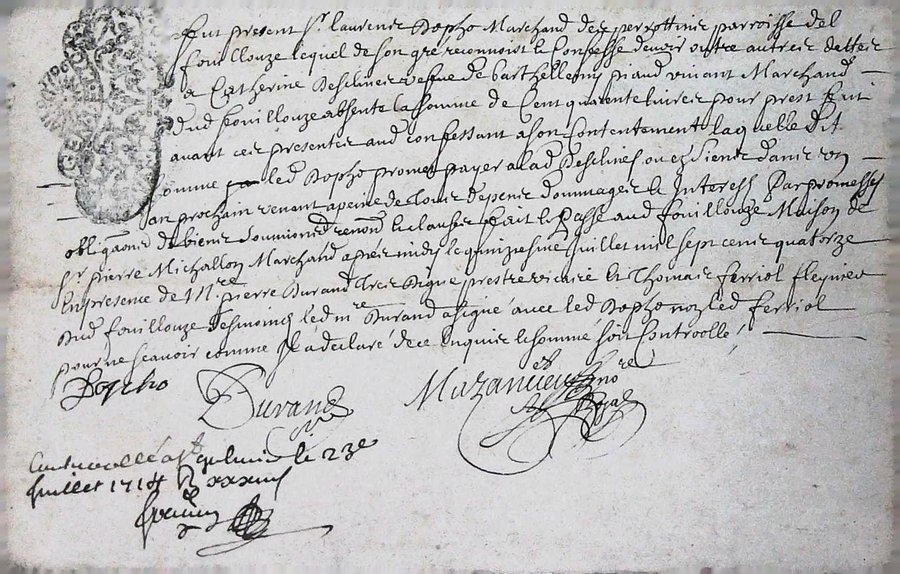 Fut present Sr laurence Bopho Marchand des perrottins parroisse del
fouillouze lequel de son gré reconnoist & Confesse devoir outre autres dettes
a Catherine Deschines vefve de barthellemy piaud vivant Marchand
dud fouillouze absente la somme de Cent quarente livres pour prest fait
avant ces presentes aud confessant a son contentement laquelle dit
somme led Bopho promet payer a lad Deschines ou es siens dans un
an prochain venant a peine de tous despens dommages & Interests Par promesses
obligaons de biens soumions renons & clauses fait & Passé aud fouillouze Maison de
sr pierre Michallon Marchand apres midy le quinzesme Juillet mil sept cens quatorze
En presence de Mre pierre Durand prestre vicaire & Thomas ferriol
dud fouillouze tesmoins led mre Durand a signé avec led Bopho non led ferriol
pour ne scavoir comme Il a declaré de ce enquis & sommé soit Controollé
Bopho Durand
no Royal
Controollé a st le 23e
Juillet 1714